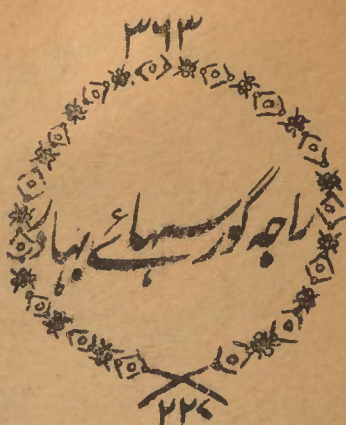 ۳۶۳
راجہ گورسہائے بہادر
۲۲۷